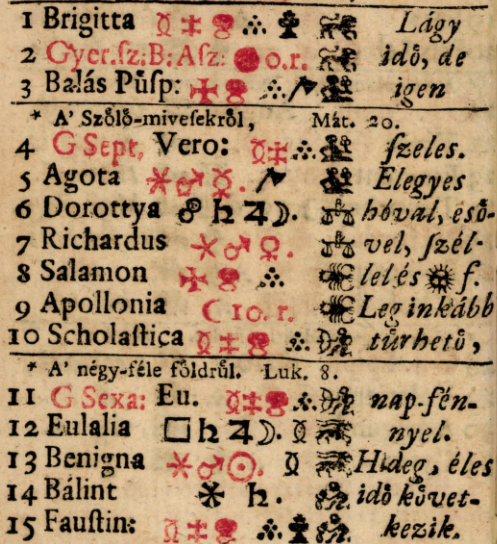 1 Brigitta Lágy
2 Gyer.ſz:B:Aſz: o.r. idő, de
3 Balás Püſp: igen
* A' Szőlő-mivesekről, Mát. 20.
4 G Sept, Vero: ſzeles.
5 Agota Elegyes
6 Dorottya ☍ ♄ ♃ ☽. hóval, eső-
7 Richardus ⚹ ♂ ♀. vel, ſzél-
8 Salamon lel és f.
9 Apollonia ☾ 10. r. Leg inkább
10 Scholaſtica türhető,
* A' négy-féle főldrűl. Luk. 8.
11 G Sexa: Eu. nap-fén-
12 Eulalia □ ♄ ♃ ☽. nyel.
13 Benigna ⚹ ♂ ☉. Hideg, éles
14 Bálint ⚹ ♄. idő kővet-
15 Fauſtin: kezik.